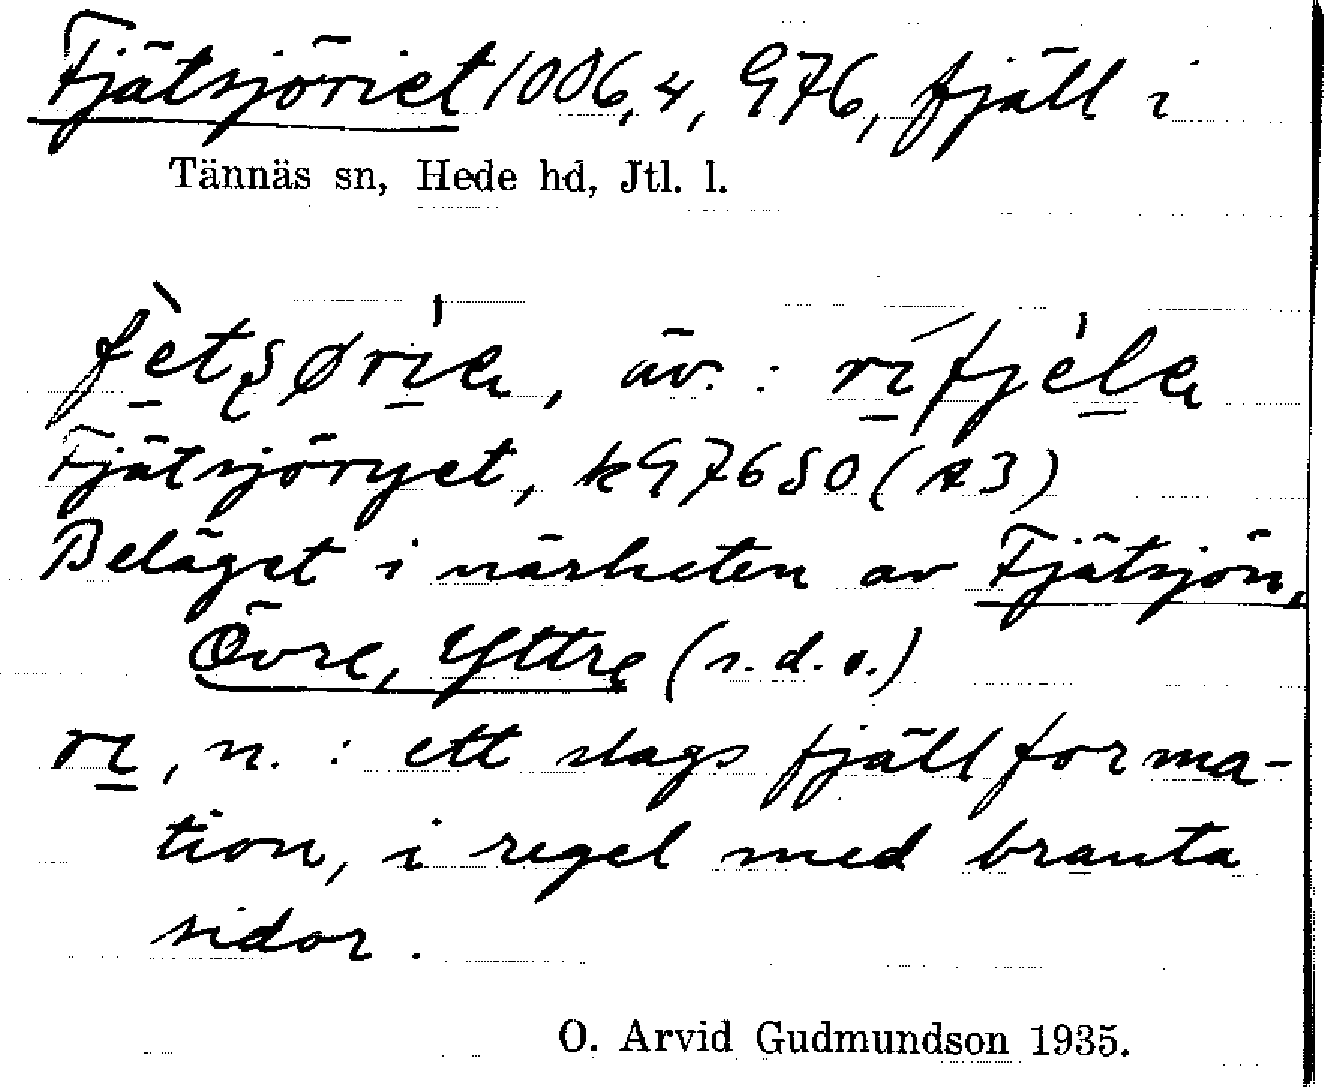 Fjätsjöriet 1006,4, 976, fjäll i
Tännäs sn, Hede hd, Jtl. l.
fètʂørí̵en, äv. : rí fjèlen
Fjätsjöryet, k97680 (R3)
Beläget i närheten av Fjätsjön,
Övre, Yttre (s.d.o.)
ri, n. : ett slags fjällforma-
tion, i regel med branta
sidor.
O. Arvid Gudmundson 1935.